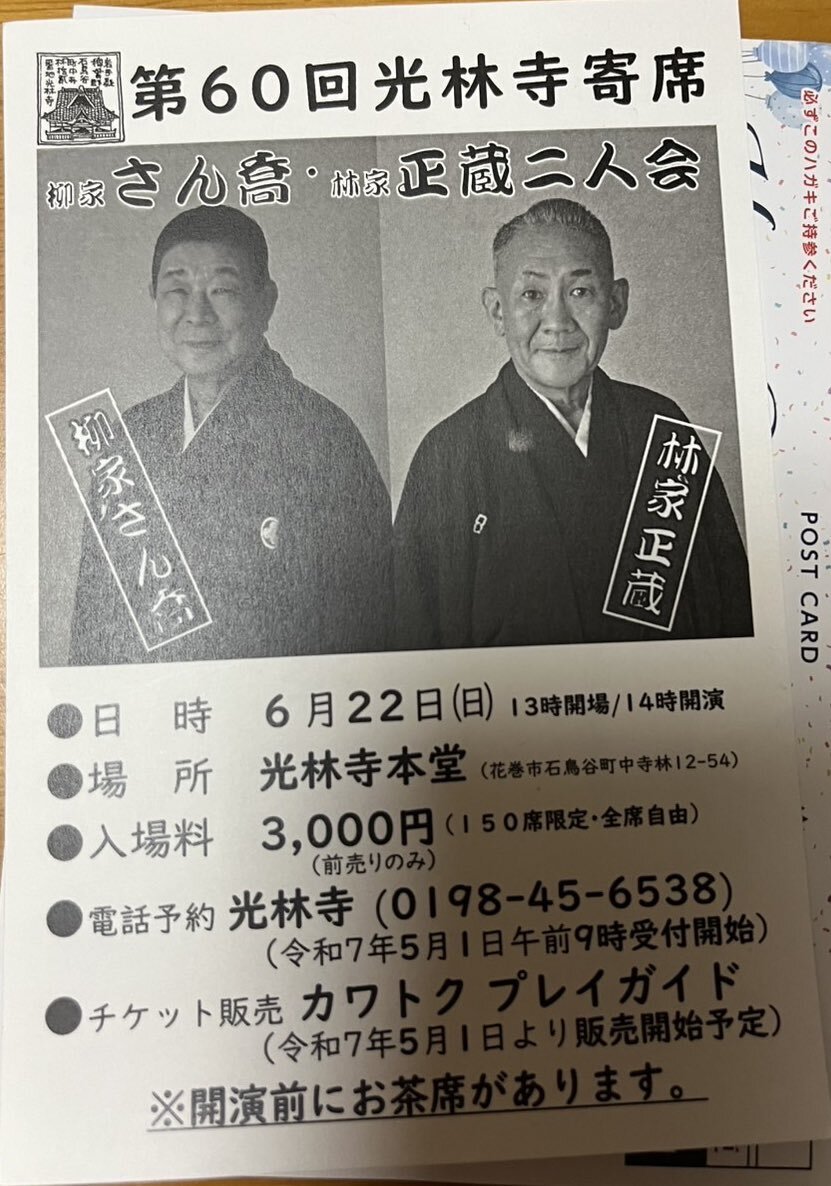 第60回光林寺寄席
柳家さん喬・林家正蔵二人会
柳家さん喬
林家正蔵
●日　時　6月22日(日) 13時開場/14時開演
●場　所　光林寺本堂（花巻市石鳥谷町中寺林12-54）
●入場料　3,000円（150席限定・全席自由）
（前売りのみ）
●電話予約 光林寺（0198-45-6538）
（令和7年5月1日午前9時受付開始）
●チケット販売 カワトク プレイガイド
（令和7年5月1日より販売開始予定）
※開演前にお茶席があります。
必ずこのハガキご持参ください
POST CARD